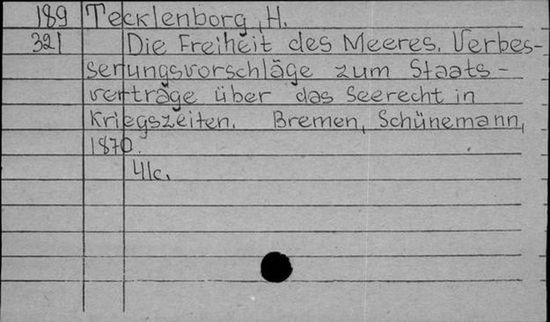 189 Tecklenborg, H.
321 Die Freiheit des Meeres. Verbes-
serungsvorschläge zum Staats-
verträge über das Seerecht in
Kriegszeiten. Bremen, Schünemann,
1870.
41c.